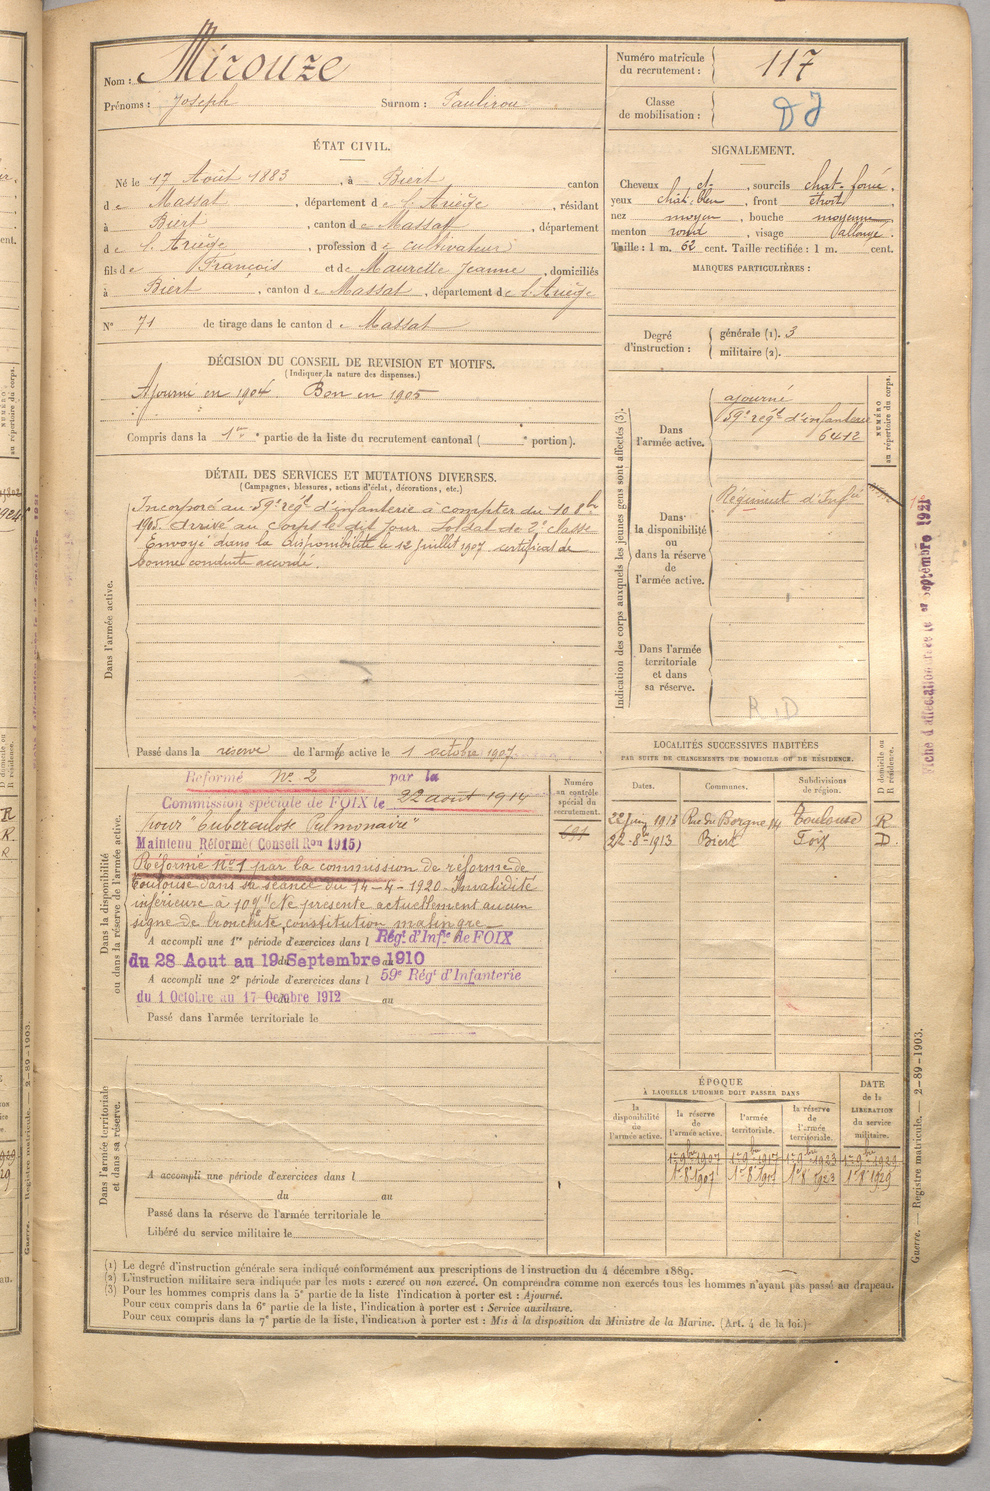 Nom : Mirouze
Prénoms : Joseph Surnom : Paulirou
Numéro matricule
du recrutement : 117
Classe
de mobilisation :
ÉTAT CIVIL.
Né le 17 Août 1883, à Biert canton
de Massat, département de l'Ariège, résidant
à Biert, canton de Massat, département
de l'Ariège, profession de cultivateur
fils de François et de Maurette Jeanne, domiciliés
à Biert, canton de Massat, département de l'Ariège
N° 71 de tirage dans le canton de Massat
SIGNALEMENT.
Cheveux et, sourcils chat. foncé.
yeux chat. bleu, front étroit,
nez moyen, bouche moyenne,
menton rond, visage allongé.
Taille : 1 m. 62 cent. Taille rectifiée : 1 m. cent.
MARQUES PARTICULIÈRES :
Degré
d'instruction :
générale (1). 3
militaire (2).
DÉCISION DU CONSEIL DE REVISION ET MOTIFS.
(Indiquer la nature des dispenses.)
Ajourné en 1904. Bon en 1905
Compris dans la 1re partie de la liste du recrutement cantonal ( e portion).
DÉTAIL DES SERVICES ET MUTATIONS DIVERSES.
(Campagnes, blessures, actions d'éclat, décorations, etc.)
Dans l'armée active.
Incorporé au 59e régt d'infanterie à compter du 10 8bre
1905. Arrivé au corps le dit jour soldat de 2e classe
Envoyé dans la disponibilité le 12 Juillet 1907 certificat de
bonne conduite accordé.
Passé dans la réserve de l'armée active le 1 octobre 1907.
Indication des corps auxquels les jeunes gens sont affectés (3).
NUMÉRO
au répertoire du corps.
Dans
l'armée active.
ajourné
59e régt d'infanterie
6412
Dans
la disponibilité
ou
dans la réserve
de
l'armée active.
Régiment d'Infie
Dans l'armée
territoriale
et dans
sa réserve.
R.D
Fiche d'affectation
septembre 1921
Dans la disponibilité
ou dans la réserve de l'armée active.
Réformé N° 2 par la
Commission spéciale de FOIX le 22 août 1914
pour "Tuberculose Pulmonaire"
Maintenu Réformé (Conseil Ron 1915)
Réformé n° 1 par la commission de réforme de
Toulouse dans sa séance du 14-4-1920. Invalidité
inférieure à 10% Ne présente actuellement aucun
signe de bronchite, constitution malingre
A accompli une 1re période d'exercices dans l Régt d'Infie de FOIX
du 28 Aout au 19 Septembre 1910
A accompli une 2e période d'exercices dans l 59e Régt d'Infanterie
du 1 Octobre au 17 Octobre 1912 au
Passé dans l'armée territoriale le
Numéro
au contrôle
spécial du
recrutement.
LOCALITÉS SUCCESSIVES HABITÉES
PAR SUITE DE CHANGEMENTS DE DOMICILE OU DE RÉSIDENCE.
Dates. Communes. Subdivisions
de région. D domicile ou
R résidence.
22 Juin 1913 Rue du Borgne 14 Toulouse R
22-8bre 1913 Biert Foix D
ÉPOQUE
À LAQUELLE L'HOMME DOIT PASSER DANS
la
disponibilité
de
l'armée active.
la réserve
de
l'armée active.
l'armée
territoriale.
la réserve
de
l'armée
territoriale.
DATE
de la
LIBÉRATION
du service
militaire.
1er 9bre 1907 1er 9bre 1917 1er 9bre 1923 1er 9bre 1929
1er 8 1907 1er 8 1923 1er 8 1929
Dans l'armée territoriale
et dans sa réserve.
A accompli une période d'exercices dans l
du au
Passé dans la réserve de l'armée territoriale le
Libéré du service militaire le
Guerre. — Registre matricule. — 2-89-1903.
(1) Le degré d'instruction générale sera indiqué conformément aux prescriptions de l'instruction du 4 décembre 1889.
(2) L'instruction militaire sera indiquée par les mots : exercé ou non exercé. On comprendra comme non exercés tous les hommes n'ayant pas passé au drapeau.
(3) Pour les hommes compris dans la 5e partie de la liste l'indication à porter est : Ajourné.
Pour ceux compris dans la 6e partie de la liste, l'indication à porter est : Service auxiliaire.
Pour ceux compris dans la 7e partie de la liste, l'indication à porter est : Mis à la disposition du Ministre de la Marine. (Art. 4 de la loi.)